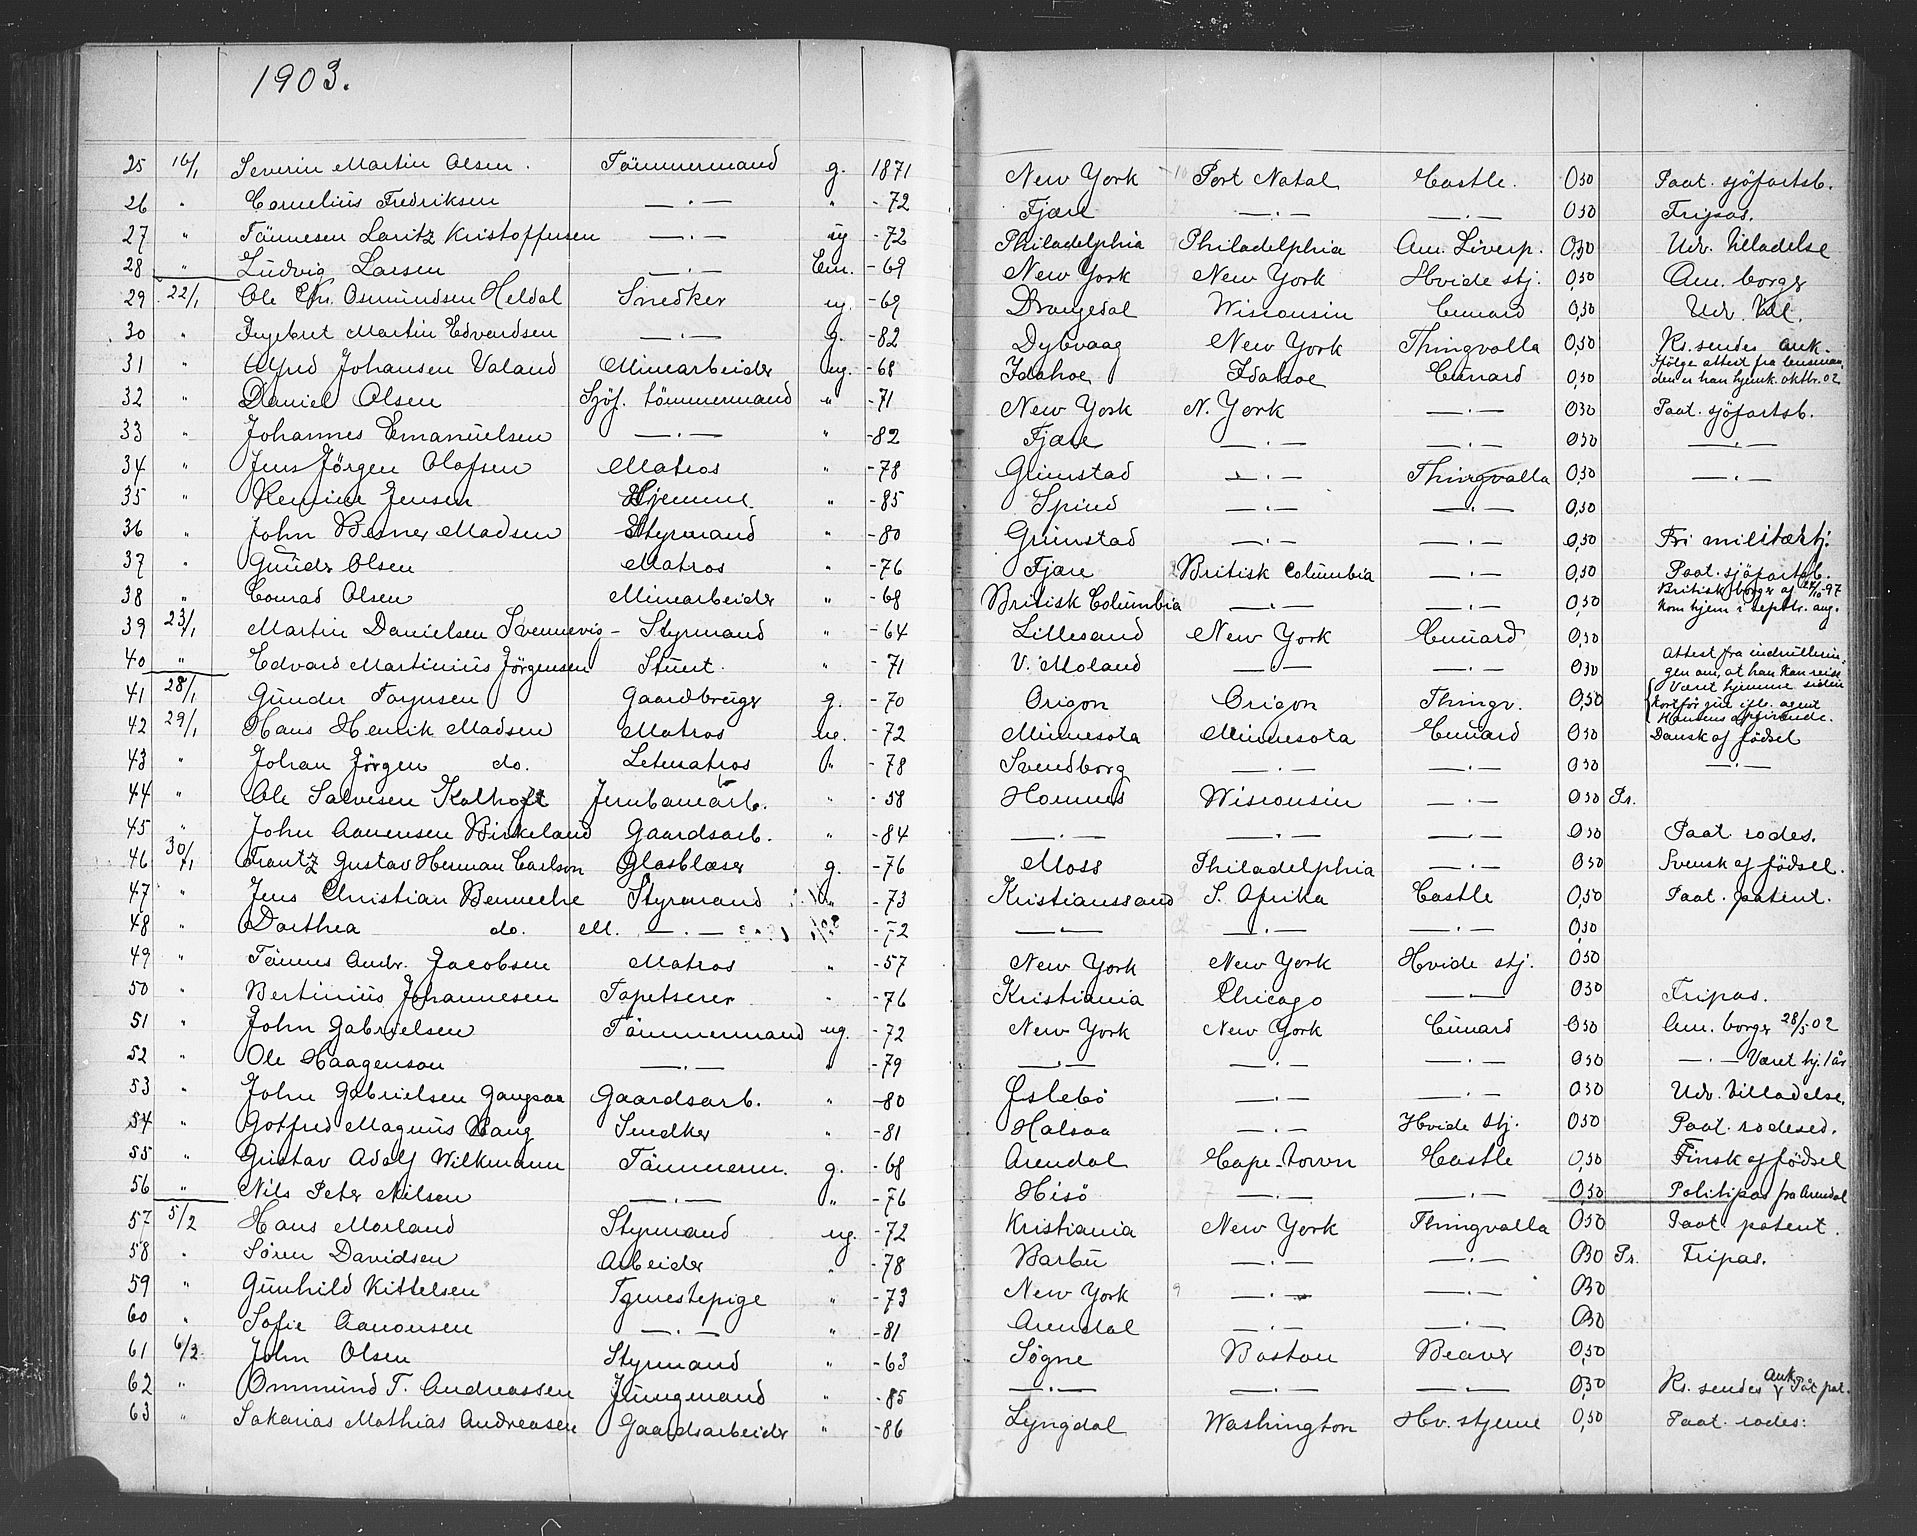 1903.
25 16/1 Severin Martin Olsen. Tömmermand g. 1871 New York Port Natal Castle. 0,50 Paat. sjöfartsb.
26 " Cornelius Fredriksen —.— " -72 Fjære —.— —.— 0,50 Fripas.
27 " Tönnesen Lauritz Kristoffersen —.— ug -72 Philadelphia Philadelphia Am. Liverp. 0,50 Udv. tilladelse
28 " Ludvig Larsen —.— Em. -69 New York New York Hvide stj. 0,50 Am. borger
29 22/1 Ole Chr. Osmundsen Heldal Snedker ug. -69 Drangedal Wisconsin Cunard 0,50 Udv. till.
30 " Ingebret Martin Edvardsen —.— g. -82 Dybvaag New York Thingvalla 0,50 Ks. sendes Ank.
31 " Alfred Johansen Valand Minearbeider ug. -68 Idahoe Idahoe Cunard 0,50 Ifölge attest fra lensman, den er han hjemk. oktbr. 02
32 " Daniel Olsen Sjöf. tömmermand " -71 New York N. York —.— 0,50 Paat. sjöfartsb.
33 " Johannes Emanuelsen —.— " -82 Fjære —.— —.— 0,50 —.—
34 " Jens Jörgen Olafsen Matros " -78 Grimstad —.— Thingvalla 0,50 —.—
35 " Jensen Hjemme " -85 Spind —.— —.— 0,50
36 " John Berner Madsen Styrmand " -80 Grimstad —.— —.— 0,50 Fri militærtj.
37 " Gunder Olsen Matros " -76 Fjære British Columbia —.— 0,50 Paat. sjöfartsb.
38 " Conrad Olsen Minearbeider " -68 British Columbia —.— —.— 0,50 British borger af 24/10-97 kom hjem i septbr. aug.
39 23/1 Martin Danielsen Svennevig Styrmand " -64 Lillesand New York Cunard 0,50
40 " Edvard Martinius Jörgensen Stuert. " -71 V. Moland —.— —.— 0,50 Attest fra indrulleringen om, at han kan reise
41 28/1 Gunder Gaardbruger g. -70 Origon Origon Thingv. 0,50 Været hjemme siden kort før jul agent Hansens
42 29/1 Hans Henrik Madsen Matros ug. -72 Minnesota Minnesota Cunard 0,50 Dansk af födsel
43 " Johan Jörgen do. Letmatros " -78 Svendborg —.— —.— 0,50 —.—
44 " Ole Salvesen Kalhoft Jernbanearb. " -58 Hommes Wisconsin —.— 0,50 Pr.
45 " John Aanensen Birkeland Gaardsarb. " -84 —.— —.— —.— 0,50 Paat. rodes.
46 30/1 Frantz Gustav Herman Carlson Glasblæser g. -76 Moss Philadelphia —.— 0,50 Svensk af födsel.
47 " Jens Christian Benneche Styrmand " -73 Kristianssand S. Afrika Castle 0,50 Paat. patent.
48 " Dorthea do. M. —.— -72 —.— —.— —.— 0,50
49 " Tönnes Andr. Jacobsen Matros " -57 New York New York Hvide stj. 0,50
50 " Bertinius Johannesen Tapetserer " -76 Kristiania Chicago —.— 0,50 Fripas.
51 " John Gabrielsen Tömmermand ug. -72 New York New York Cunard 0,50 Am. borger 28/5 02
52 " Ole Haagenson —.— " -79 —.— —.— —.— 0,50 —.— Været hj. 1 år
53 " John Gabrielsen Gangsaa Gaardsarb. " -80 Øslebö —.— —.— 0,50 Udv. tilladelse.
54 " Gotfred Magnus Haug Snedker " -81 Halsaa —.— Hvide stj. 0,50 Paat. rodesed.
55 " Gustav Adolf Wilkmann Tömmerm. g. -68 Arendal Cape-town Castle 0,50 Finsk af födsel
56 " Nils Peter Nilsen —.— " -76 Hisö —.— —.— 0,50 Politipas fra Arendal
57 5/2 Hans Morland Styrmand ug. -72 Kristiania New York Thingvalla 0,50 Paat patent.
58 " Sören Davidsen Arbeider " -78 Barbu —.— —.— 0,50 Pr. Fripas.
59 " Gunhild Kittelsen Tjenestepige " -73 New York —.— —.— 0,50
60 " Sofie Aanonsen —.— " -81 Arendal —.— —.— 0,50
61 6/2 John Olsen Styrmand " -63 Søgne Boston Beaver 0,50
62 " Ommund T. Andreassen Jungmand " -85 —.— —.— —.— 0,50 Ks. sendes Ank. Påt pat.
63 " Sakarias Mathias Andreasen Gaardsarbeider " -86 Lyngdal Washington Hv. stjerne 0,50 Paat. rodes.